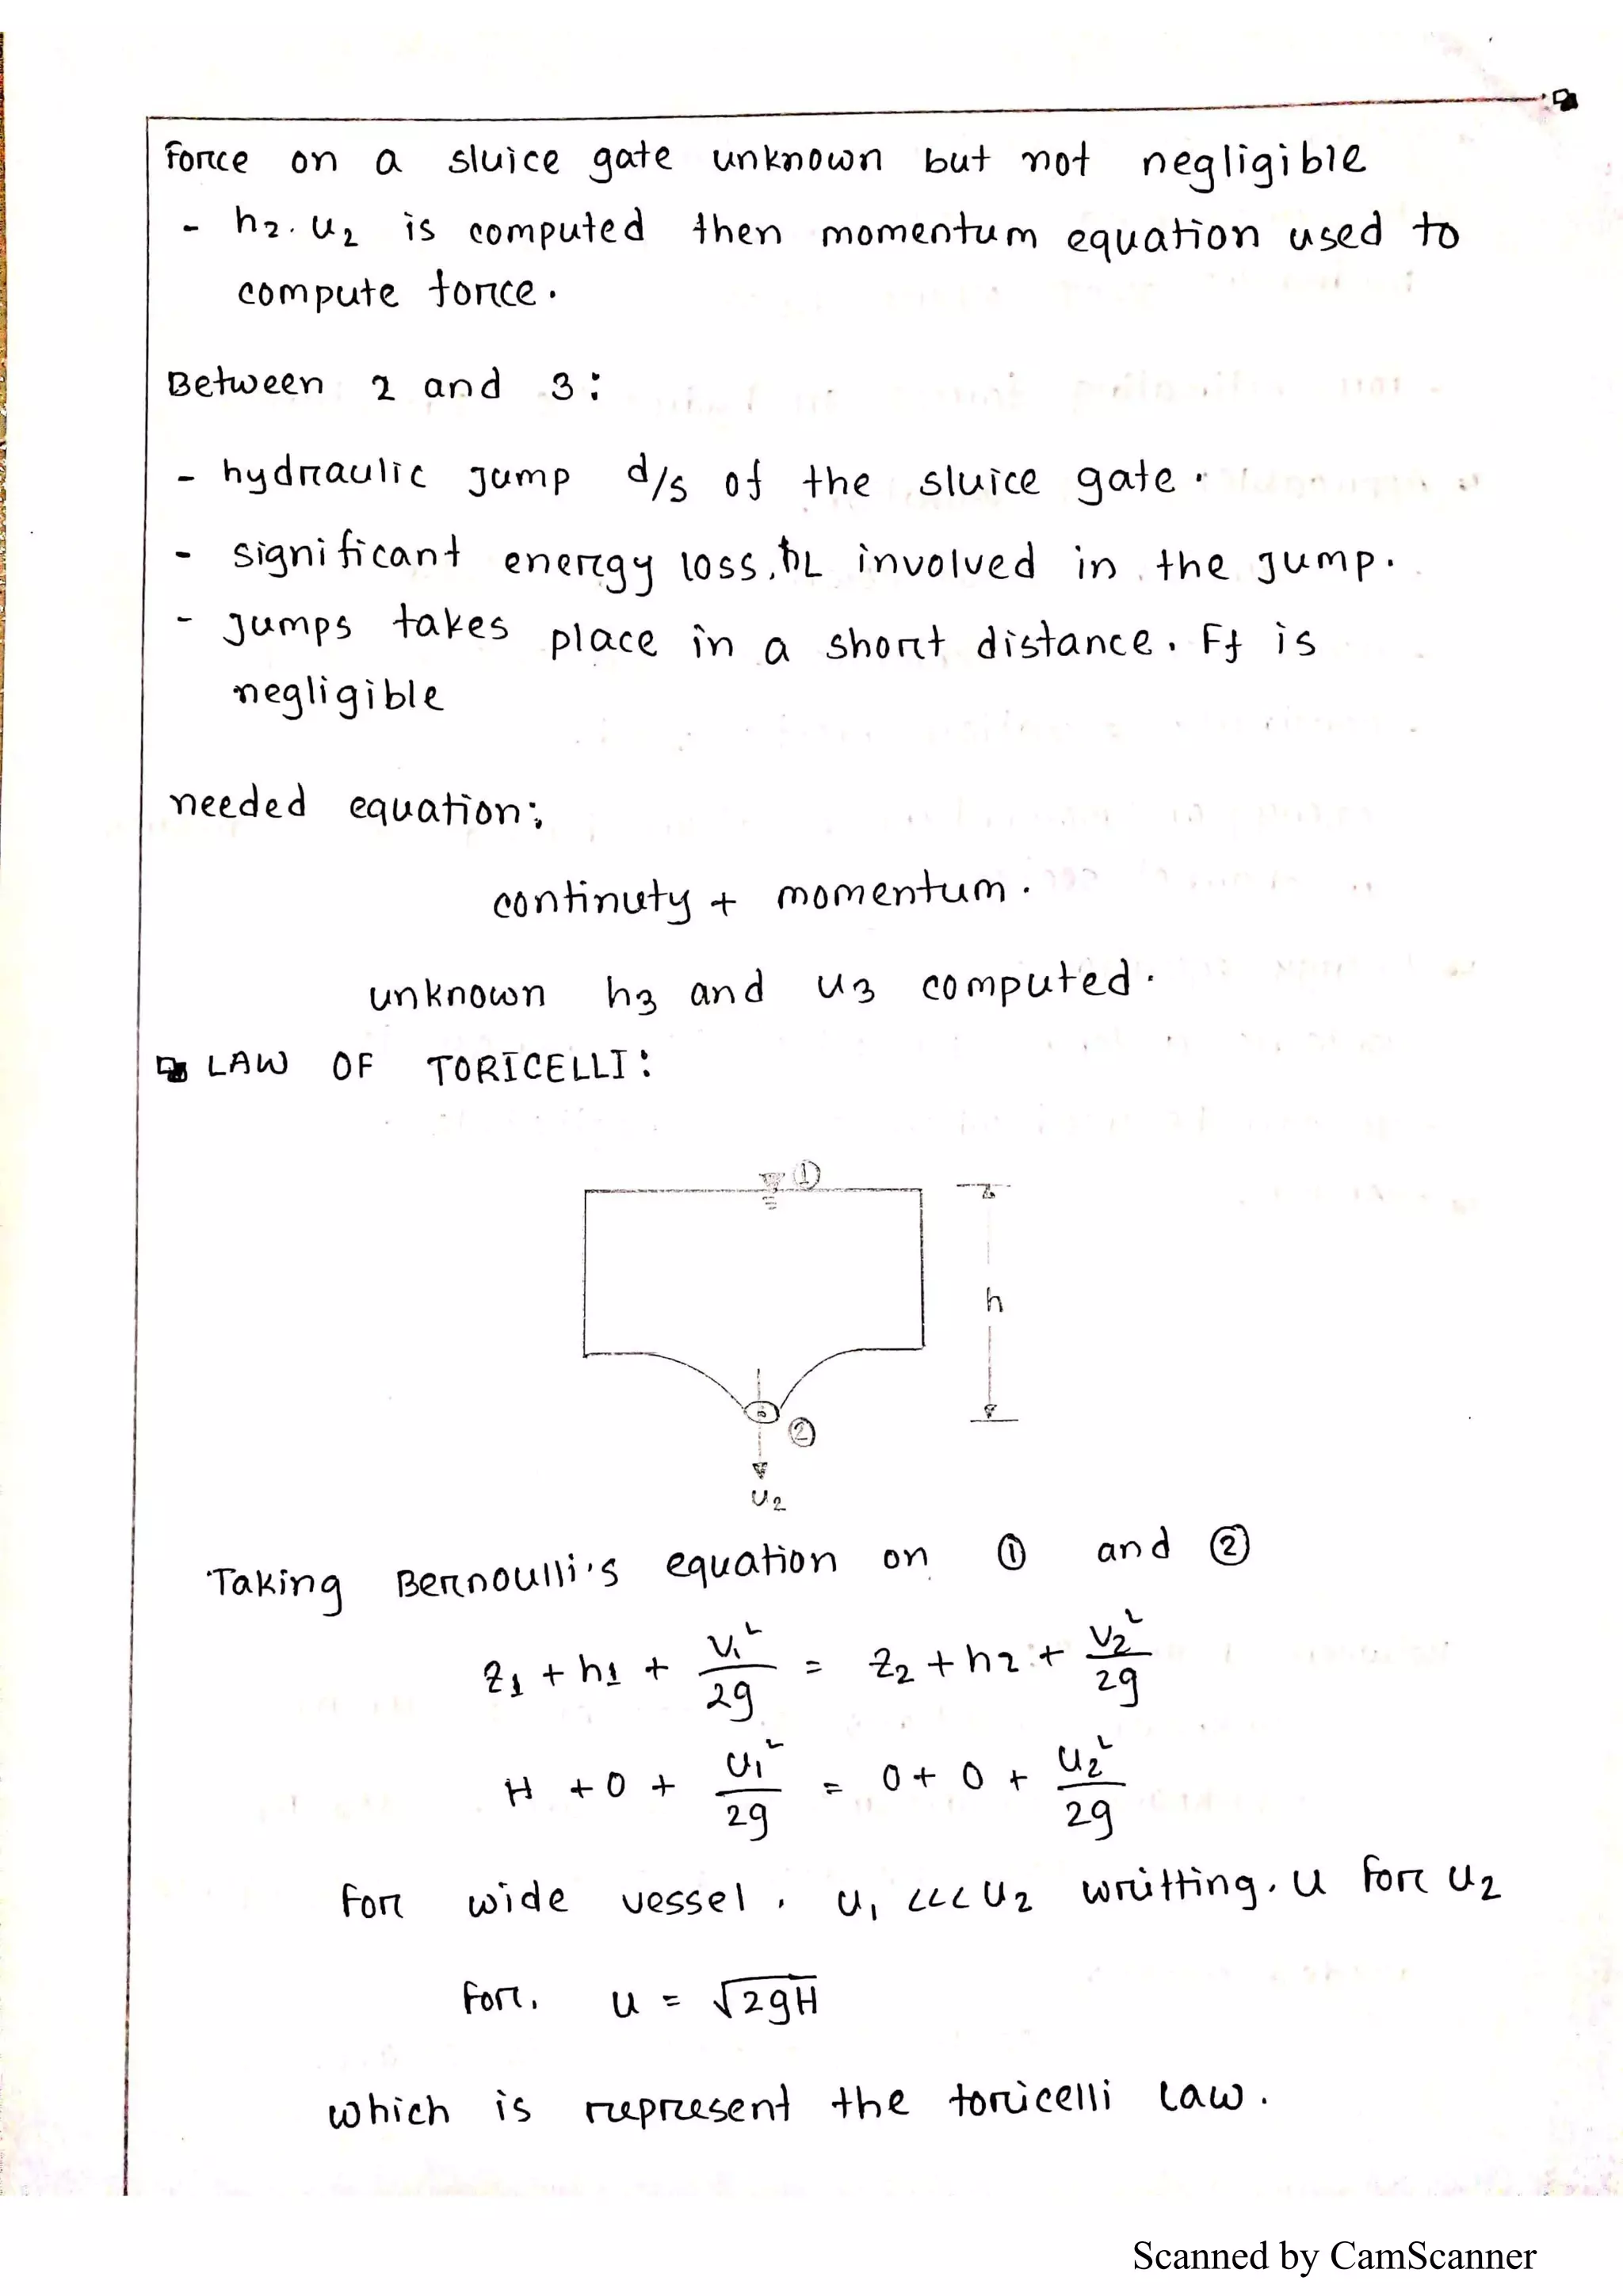 Force on a sluice gate unknown but not negligible
- h2. u2 is computed then momentum equation used to
compute force.
Between 2 and 3:
- hydraulic Jump d/s of the sluice gate.
- significant energy loss, hL involved in the Jump.
- Jumps takes place in a short distance. Ff is
negligible
needed equation:
continuty + momentum.
unknown h3 and u3 computed.
LAW OF TORICELLI:
①
h
②
u2
Taking Bernoulli's equation on ① and ②
z1 + h1 + V1²/2g = z2 + h2 + V2²/2g
H + 0 + u1²/2g = 0 + 0 + u2²/2g
For wide vessel, u1 <<< u2 writting, u for u2
For, u = √2gH
which is represent the toricelli law.
Scanned by CamScanner